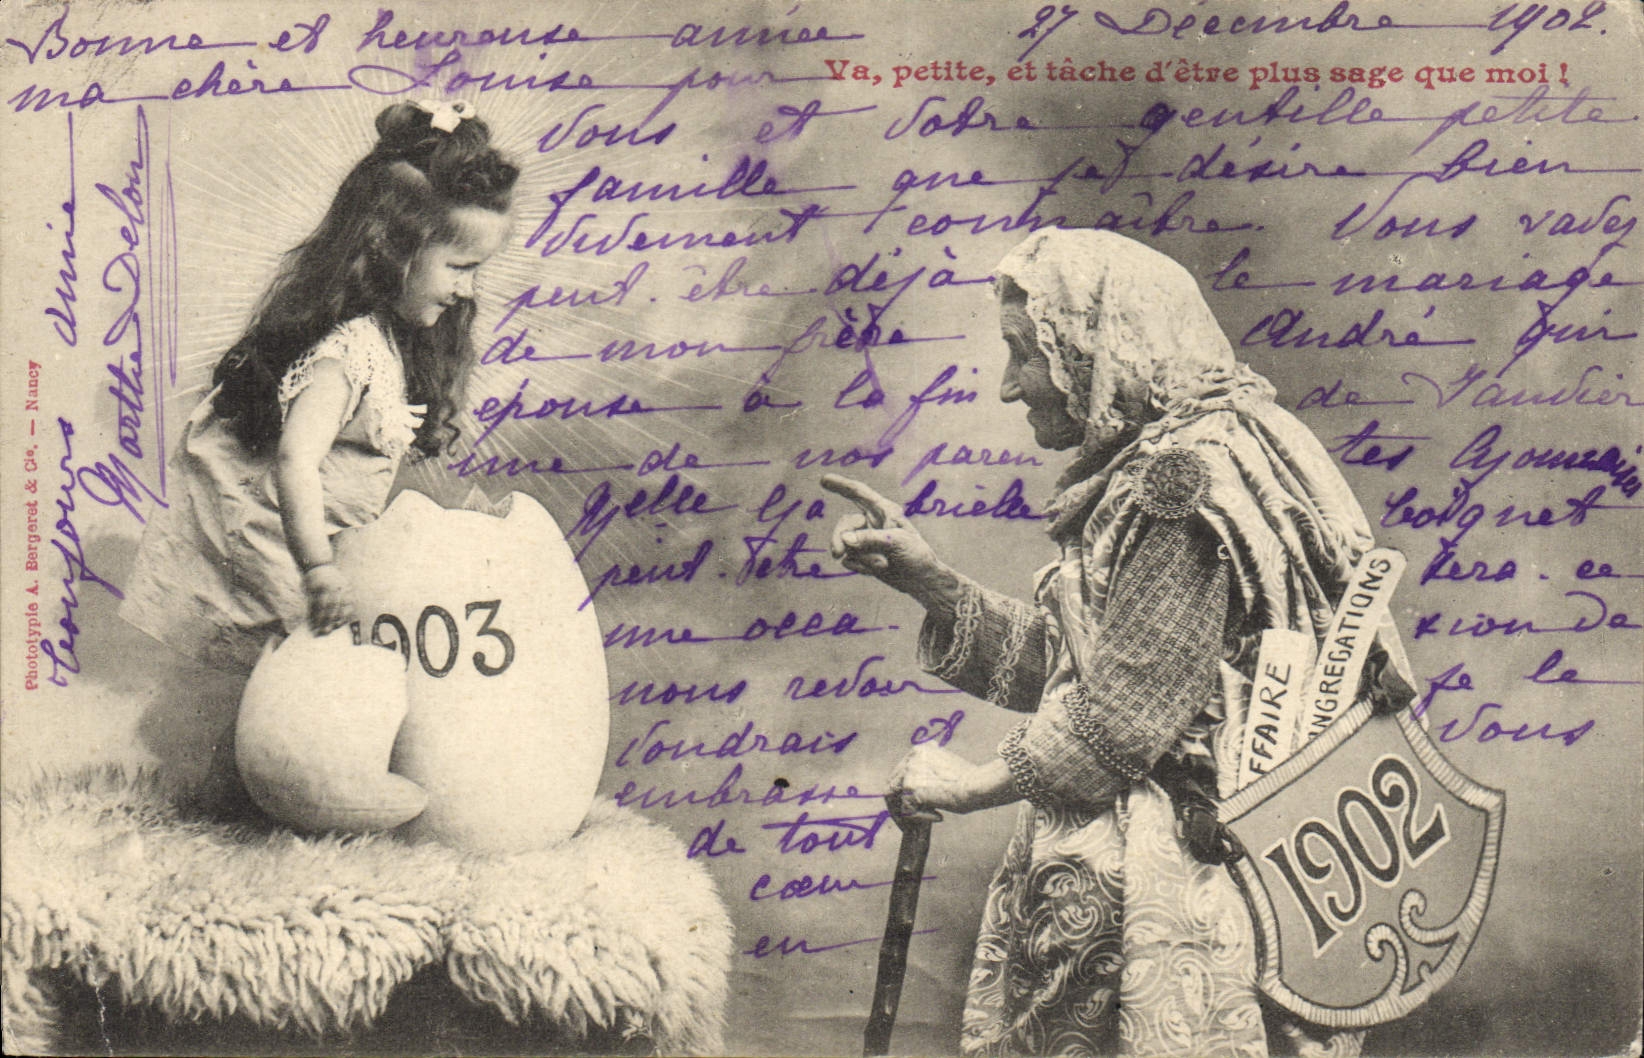 Bonne et heureuse année 27 Décembre 1902.
ma chère Louise pour
Va, petite, et tâche d'être plus sage que moi !
vous et votre gentille petite
famille que je désire bien
vivement connaître. Vous savez
peut-être déjà le mariage
de mon frère André qui
épouse à la fin de Janvier
une de nos parentes lyonnaises
Melle Gabrielle Coignet
peut-être sera-ce
une occasion de
nous revoir je le
voudrais et vous
embrasse
de tout
cœur
en
toujours amie
Marthe Delon
Phototypie A. Bergeret & Cie. — Nancy
1903
AFFAIRE
CONGREGATIONS
1902